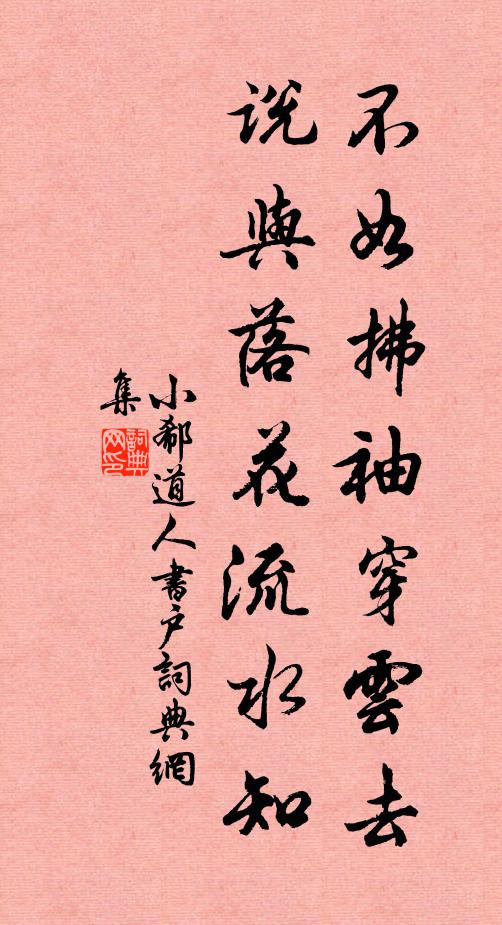 不如拂袖穿雲去
説與落花流水知
小郗道人書戶詞典網
集
詞典
网印